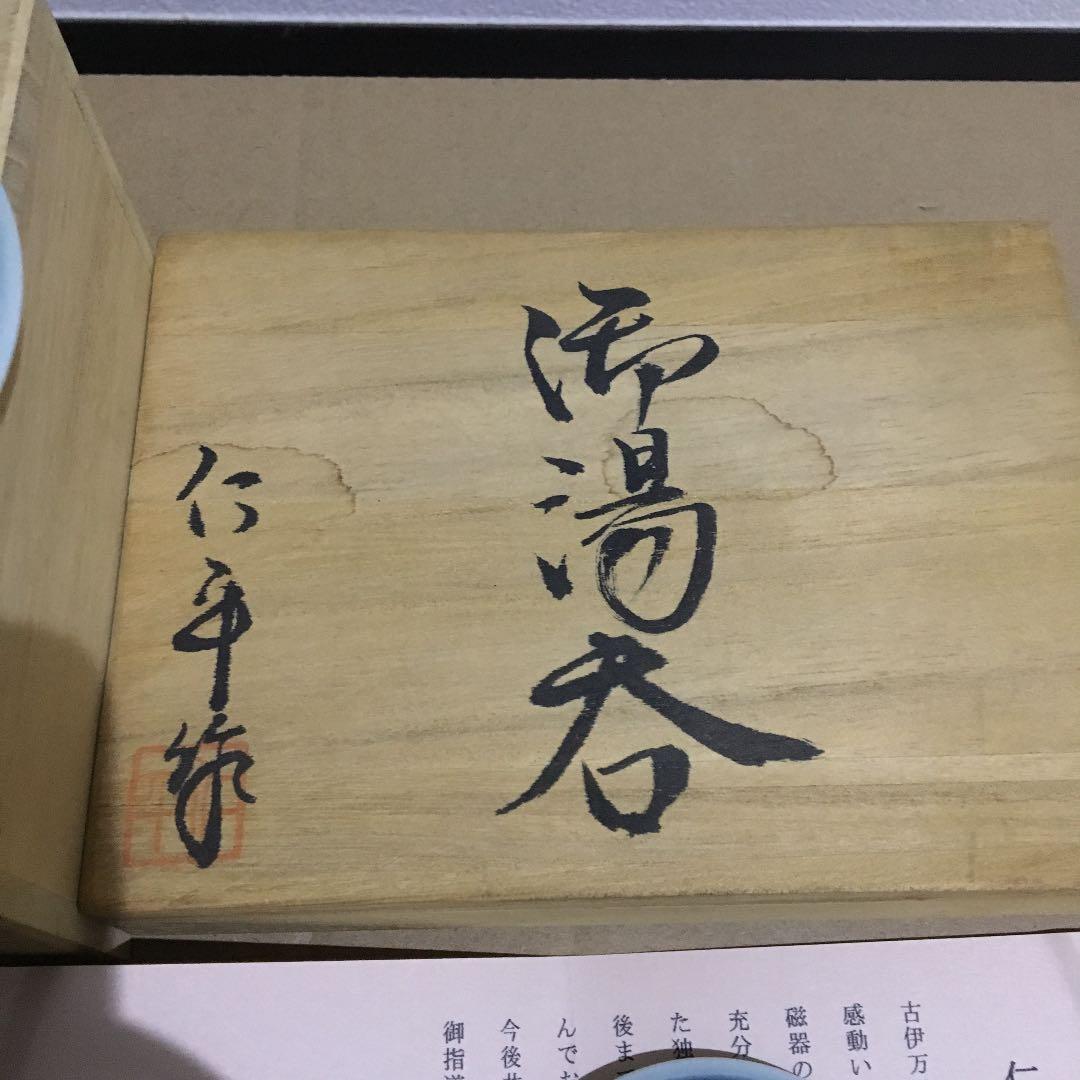 御湯呑
仁平作
仁
古伊万
感動い
磁器の
充分
た独
後ま
んでお
今後共
御指導